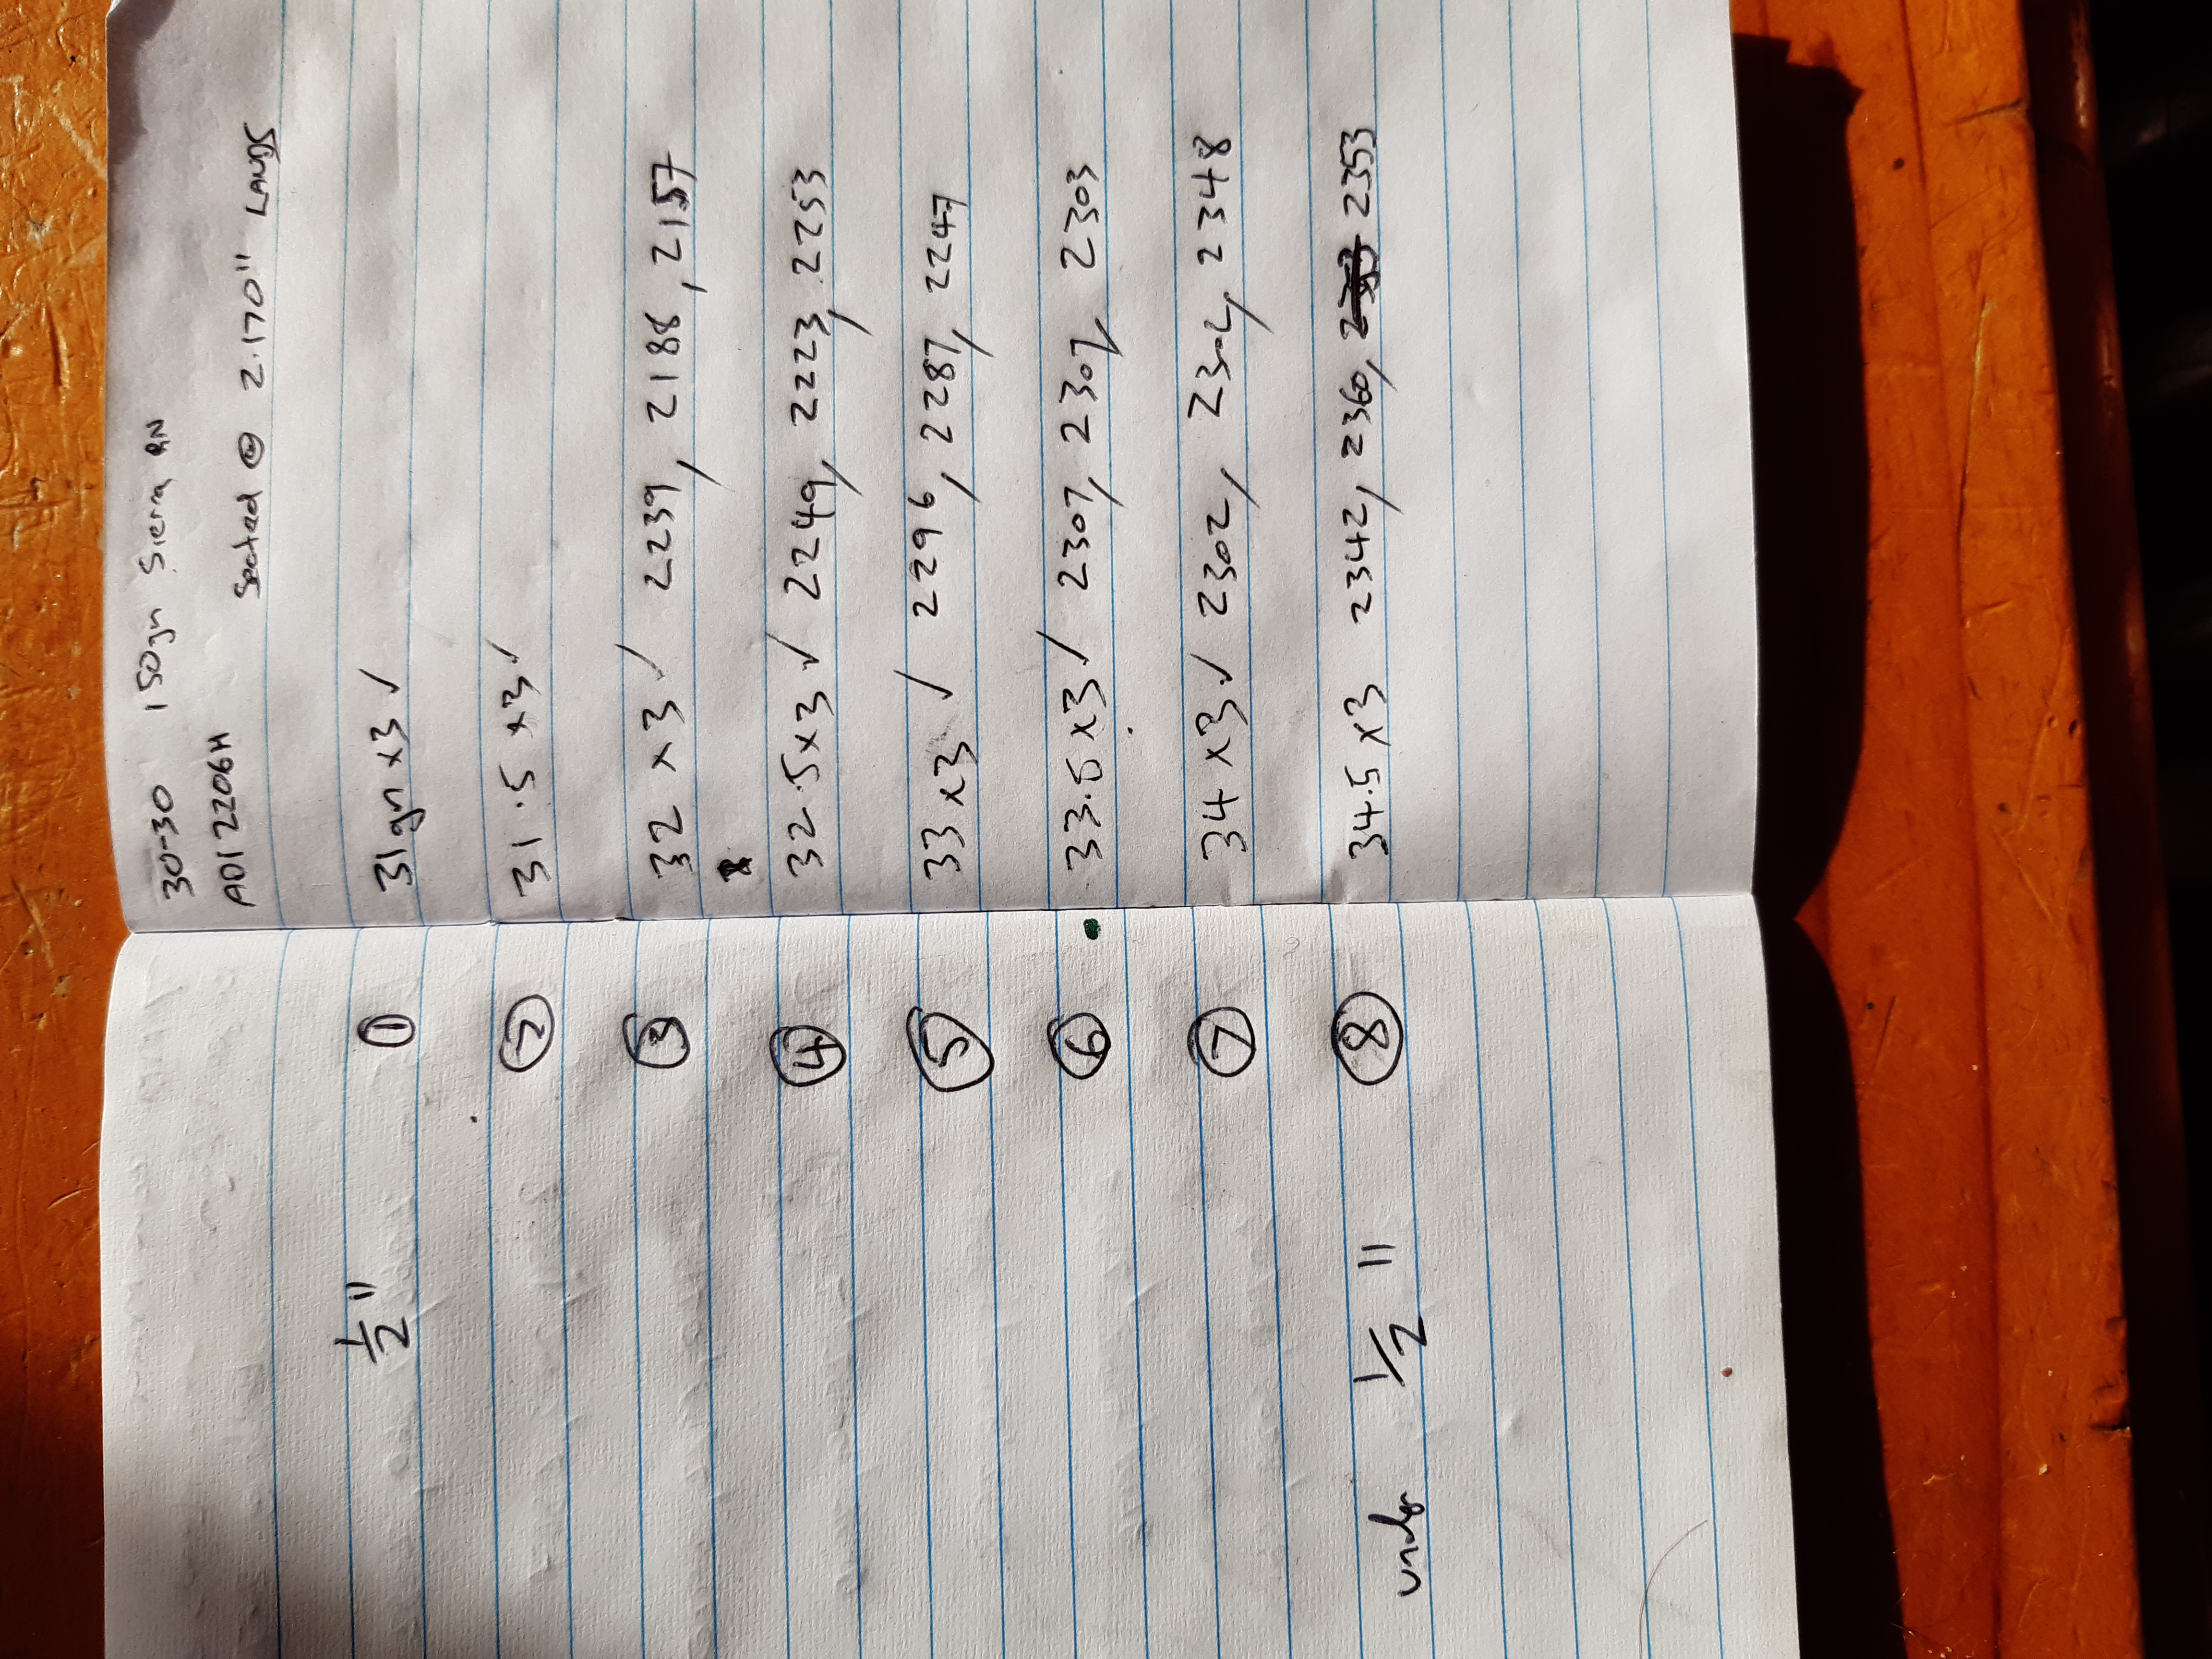 30-30 150gn Sierra RN
ADI 2206H
Seated @ 2.170" LANDS
1/2" ① 31gn x3 ✓
② 31.5 x3 ✓
③ 32 x3 ✓ 2239, 2188, 2157
④ 32.5x3 ✓ 2249, 2223, 2253
⑤ 33x3 ✓ 2296, 2287, 2247
⑥ 33.5x3 ✓ 2307, 2307, 2303
⑦ 34 x3 ✓ 2302, 2302, 2348
under 1/2" ⑧ 34.5x3 2342, 2360, 2353